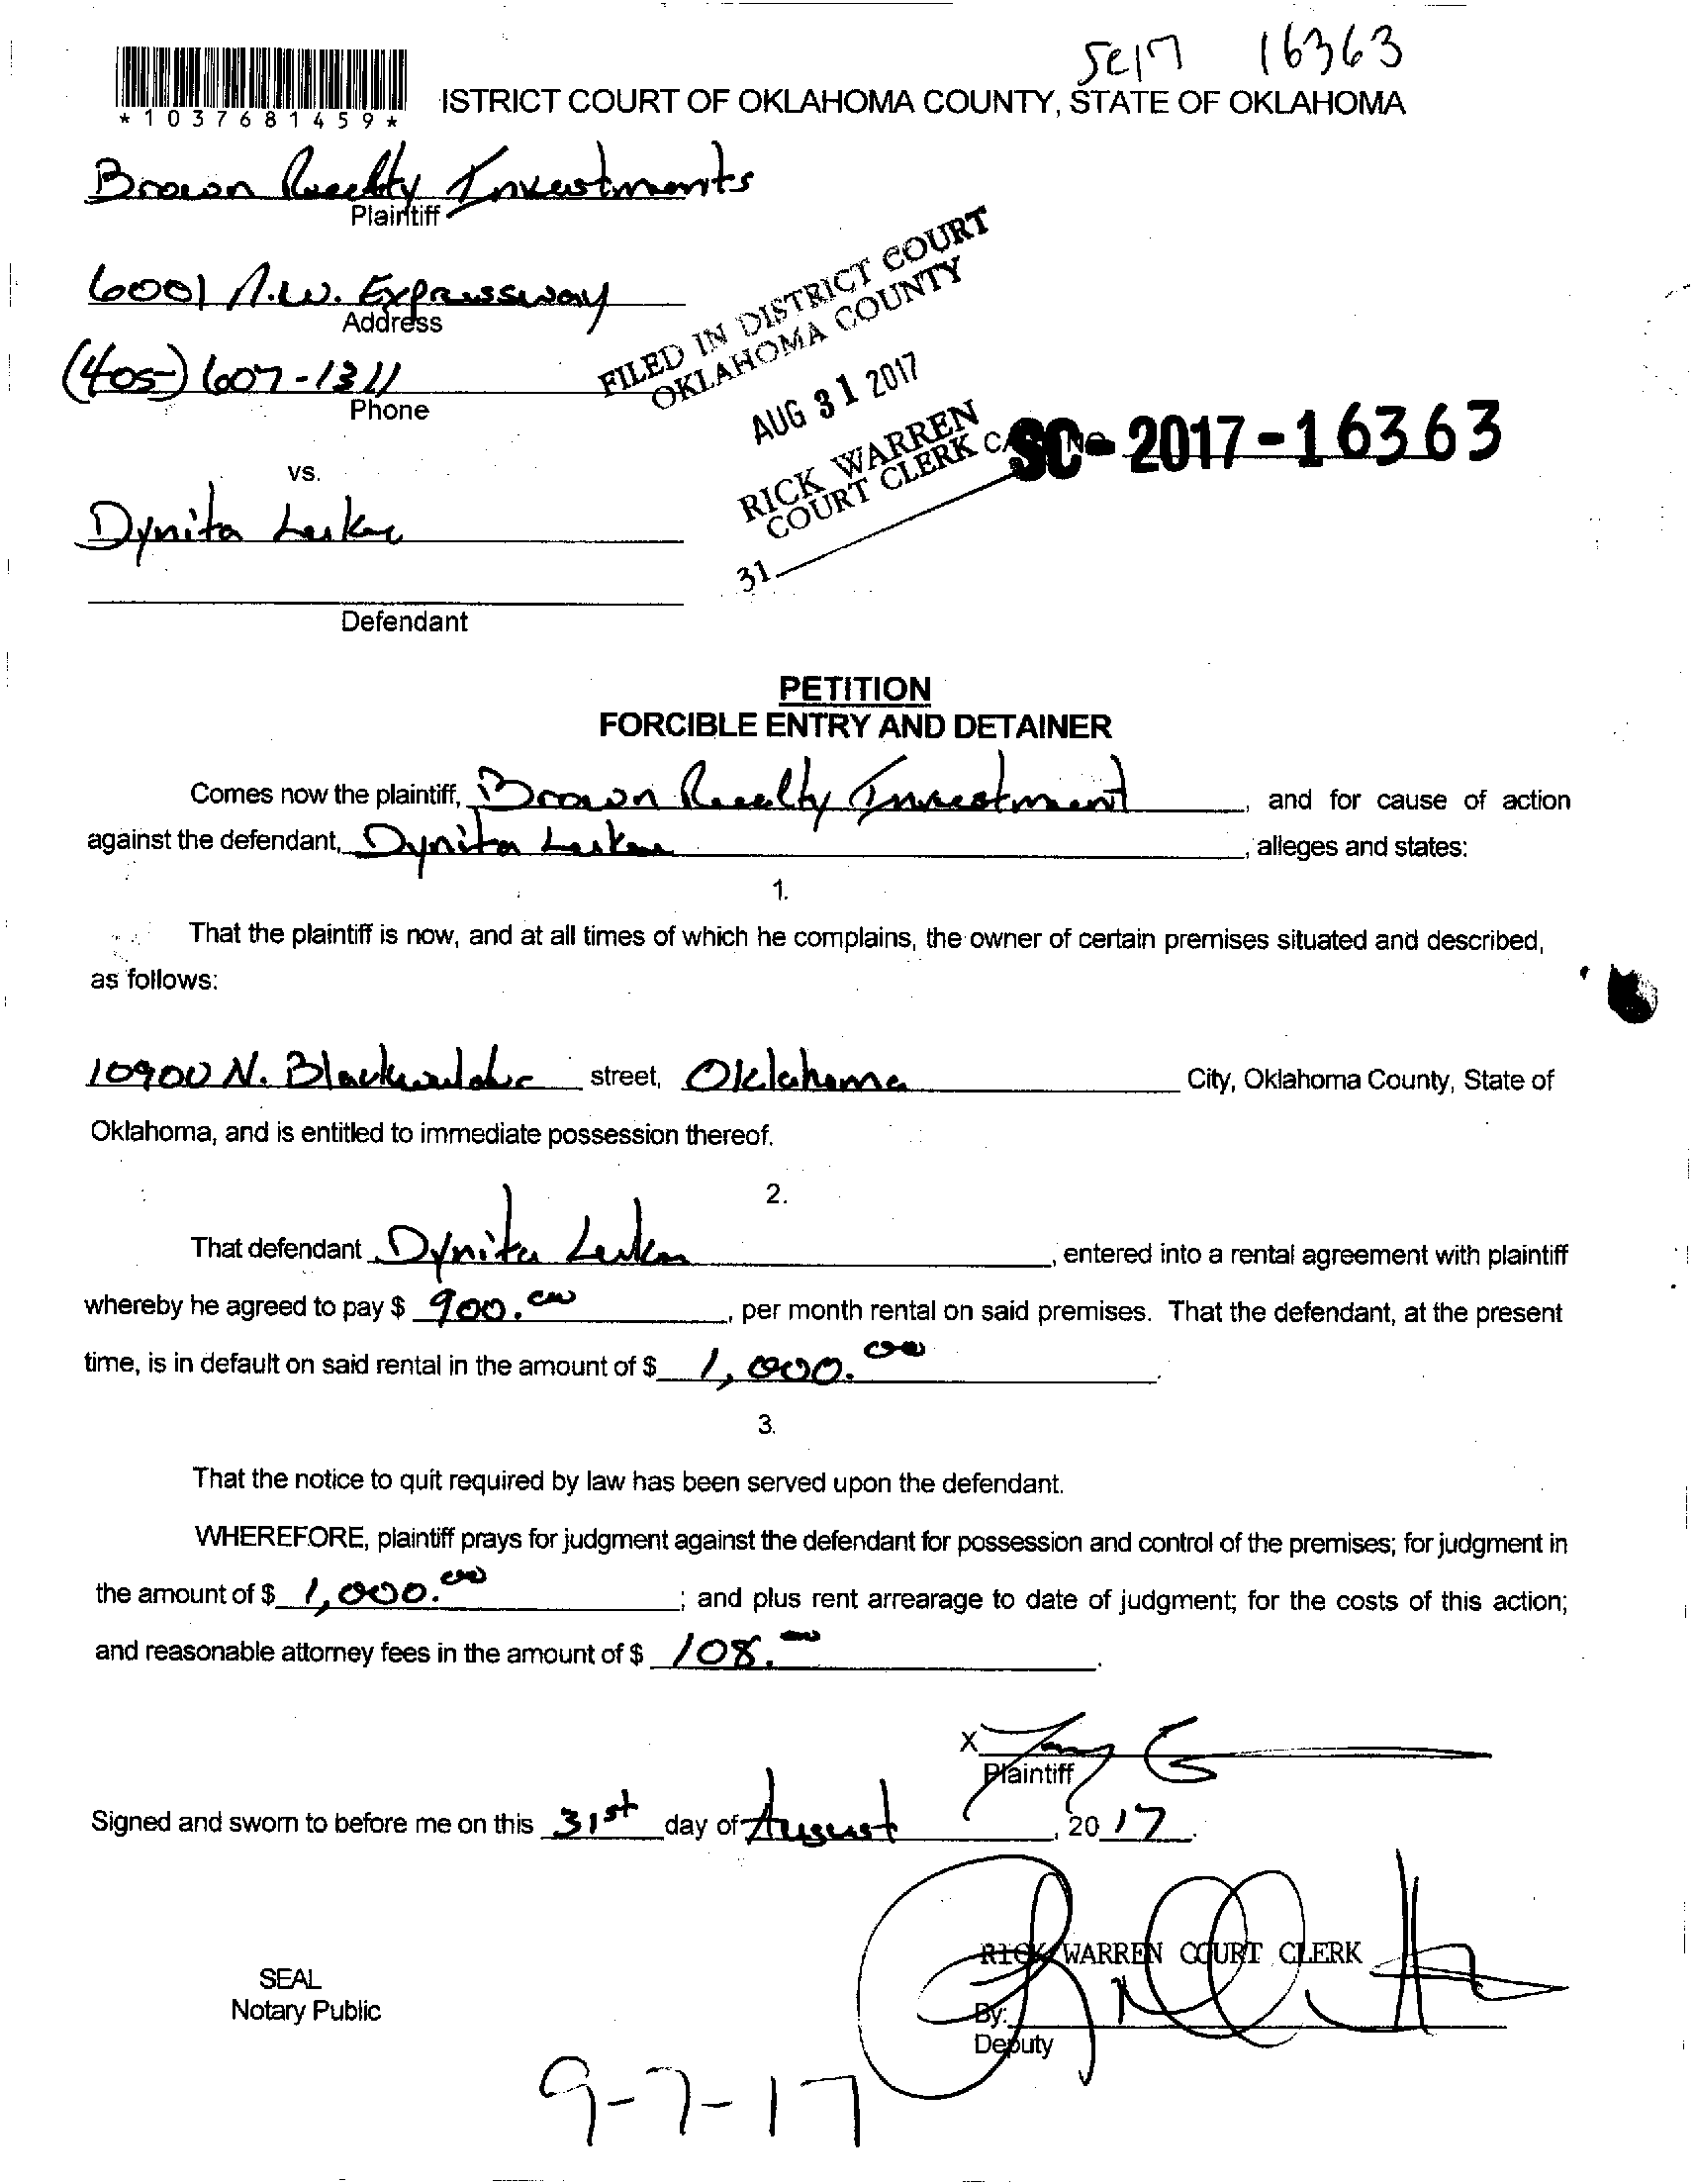 SC17 16363
*1037681459*
ISTRICT COURT OF OKLAHOMA COUNTY, STATE OF OKLAHOMA
Brown Realty Investments
Plaintiff
6001 N.W. Expressway
Address
(405) 607-1311
Phone
FILED IN DISTRICT COURT
OKLAHOMA COUNTY
AUG 31 2017
RICK WARREN
COURT CLERK
31
SC-2017-16363
vs.
Dynita
Defendant
PETITION
FORCIBLE ENTRY AND DETAINER
Comes now the plaintiff, Brown Realty Investment, and for cause of action
against the defendant, Dynita, alleges and states:
1.
That the plaintiff is now, and at all times of which he complains, the owner of certain premises situated and described,
as follows:
10900 N. street, Oklahoma City, Oklahoma County, State of
Oklahoma, and is entitled to immediate possession thereof.
2.
That defendant Dynita, entered into a rental agreement with plaintiff
whereby he agreed to pay $ 900.00, per month rental on said premises. That the defendant, at the present
time, is in default on said rental in the amount of $ 1,000.00.
3.
That the notice to quit required by law has been served upon the defendant.
WHEREFORE, plaintiff prays for judgment against the defendant for possession and control of the premises; for judgment in
the amount of $ 1,000.00; and plus rent arrearage to date of judgment; for the costs of this action;
and reasonable attorney fees in the amount of $ 108.00.
X
Plaintiff
Signed and sworn to before me on this 31st day of August, 20 17.
RICK WARREN COURT CLERK
SEAL
Notary Public
By:
Deputy
9-7-17